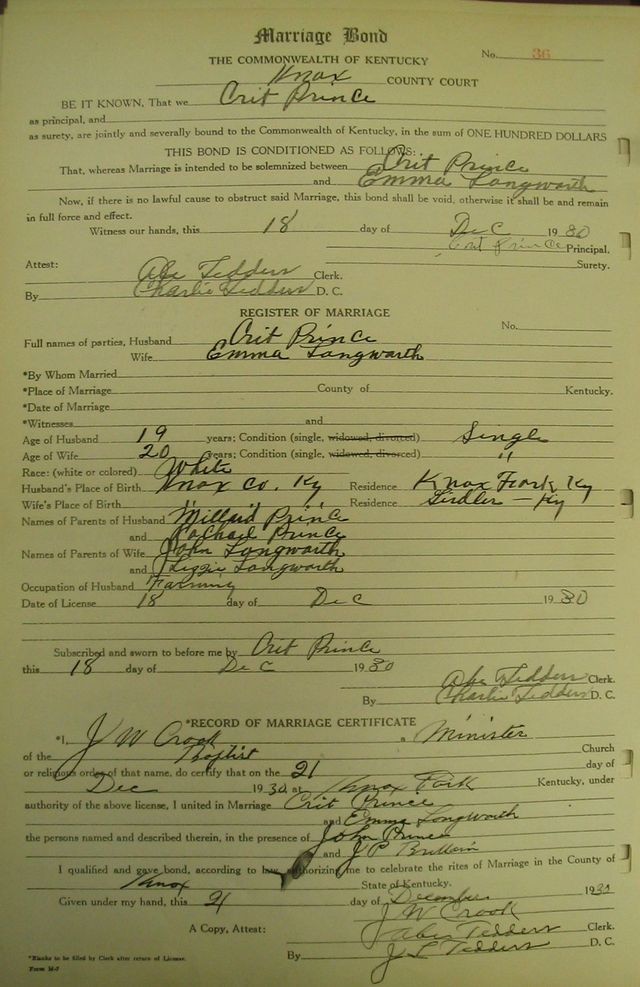 Marriage Bond
THE COMMONWEALTH OF KENTUCKY No. 36
Knox COUNTY COURT
BE IT KNOWN, That we Crit Prince
as principal, and
as surety, are jointly and severally bound to the Commonwealth of Kentucky, in the sum of ONE HUNDRED DOLLARS
THIS BOND IS CONDITIONED AS FOLLOWS:
That, whereas Marriage is intended to be solemnized between Crit Prince
and Emma Longworth
Now, if there is no lawful cause to obstruct said Marriage, this bond shall be void, otherwise it shall be and remain
in full force and effect.
Witness our hands, this 18 day of Dec 1930
Crit Prince Principal.
Attest: Surety.
Abe Tedders Clerk.
By Charlie Tedders D. C.
REGISTER OF MARRIAGE
No.
Full names of parties, Husband Crit Prince
Wife Emma Longworth
*By Whom Married
*Place of Marriage County of Kentucky.
*Date of Marriage
*Witnesses and
Age of Husband 19 years; Condition (single, widowed, divorced) Single
Age of Wife 20 years; Condition (single, widowed, divorced) "
Race: (white or colored) White
Husband's Place of Birth Knox Co. Ky Residence Knox Fork, Ky
Wife's Place of Birth " " Residence Girdler - Ky
Names of Parents of Husband Millard Prince
and Rachael Prince
Names of Parents of Wife John Longworth
and Lizzie Longworth
Occupation of Husband Farming
Date of License 18 day of Dec 1930
Subscribed and sworn to before me by Crit Prince
this 18 day of Dec 1930
Abe Tedders Clerk.
By Charlie Tedders D. C.
*RECORD OF MARRIAGE CERTIFICATE
*I, J W Crook a Minister
of the Baptist Church
or religious order of that name, do certify that on the 21 day of
Dec 1930 at Knox Fork Kentucky, under
authority of the above license, I united in Marriage Crit Prince
and Emma Longworth
the persons named and described therein, in the presence of John Prince
and J P Brittain
I qualified and gave bond, according to law, authorizing me to celebrate the rites of Marriage in the County of
Knox State of Kentucky.
Given under my hand, this 21 day of December 1930
J W Crook
A Copy, Attest: Abe Tedders Clerk.
By J L Tedders D. C.
*Blanks to be filled by Clerk after return of License.
Form M-7